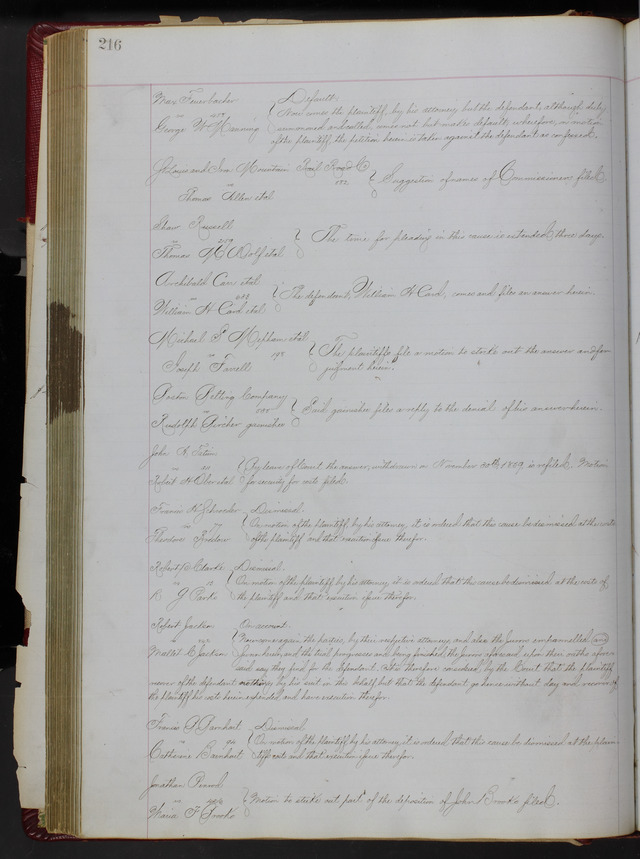 216
Max Feuerbacher Default.
Now comes the plaintiff, by his attorney, but the defendant, although duly
George W Manning summoned and called, comes not but makes default; wherefore, on motion
of the plaintiff, the petition herein is taken against the defendant as confessed.
St Louis and Iron Mountain Rail Road Co
Suggestion of names of Commissioners filed.
Thomas Allen etal
Shaw Russell
The time for pleading in this cause is extended three days.
Thomas etal
Archibald Carr etal
The defendant, William H Card, comes and files an answer herein.
William H Card etal
Michael etal
198 The plaintiffs file a motion to strike out the answer and for
Joseph Favell judgment herein.
Company
Said garnishee files a reply to the denial of his answer herein.
Rudolph garnishee
John
By leave of Court the answer, withdrawn on November 30th 1869, is refiled. Motion
Robert etal for security for costs filed.
Francis Dismissal.
On motion of the plaintiff, by his attorney, it is ordered that this cause be dismissed at the costs
Theodore of the plaintiff and that execution issue therefor.
Robert Clarke Dismissal.
On motion of the plaintiff by his attorney it is ordered that this cause be dismissed at the costs of
the plaintiff and that execution issue therefor.
Robert Jackson On account.
Now come again the parties, by their respective attorneys, and also the jurors empannelled and
Jackson sworn herein, and the trial progresses and being finished, the jurors aforesaid, upon their oaths afore-
said say they find for the defendant. It is therefore considered by the Court that the plaintiff
recover of the defendant nothing by his suit in this behalf but that the defendant go hence without day and recover of
the plaintiff his costs herein expended, and have execution therefor.
Francis Barnhart Dismissal.
On motion of the plaintiff by his attorney, it is ordered that this cause be dismissed at the plain-
Catherine Barnhart tiffs costs and that execution issue therefor.
Jonathan
Motion to strike out part of the deposition of John Brooks filed.
Maria F Brooks